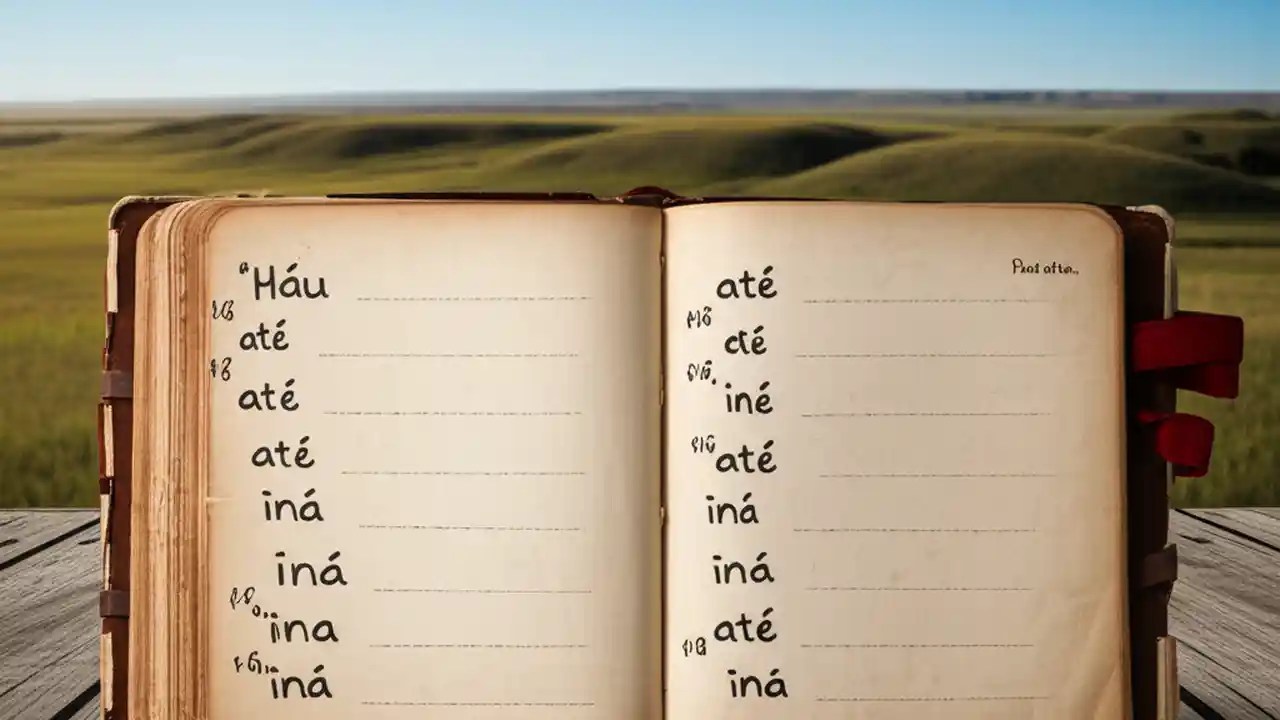 "Háu
até
até
até
iná
iná
ina
iná
até
até
iné
até
iná
iná
até
iná